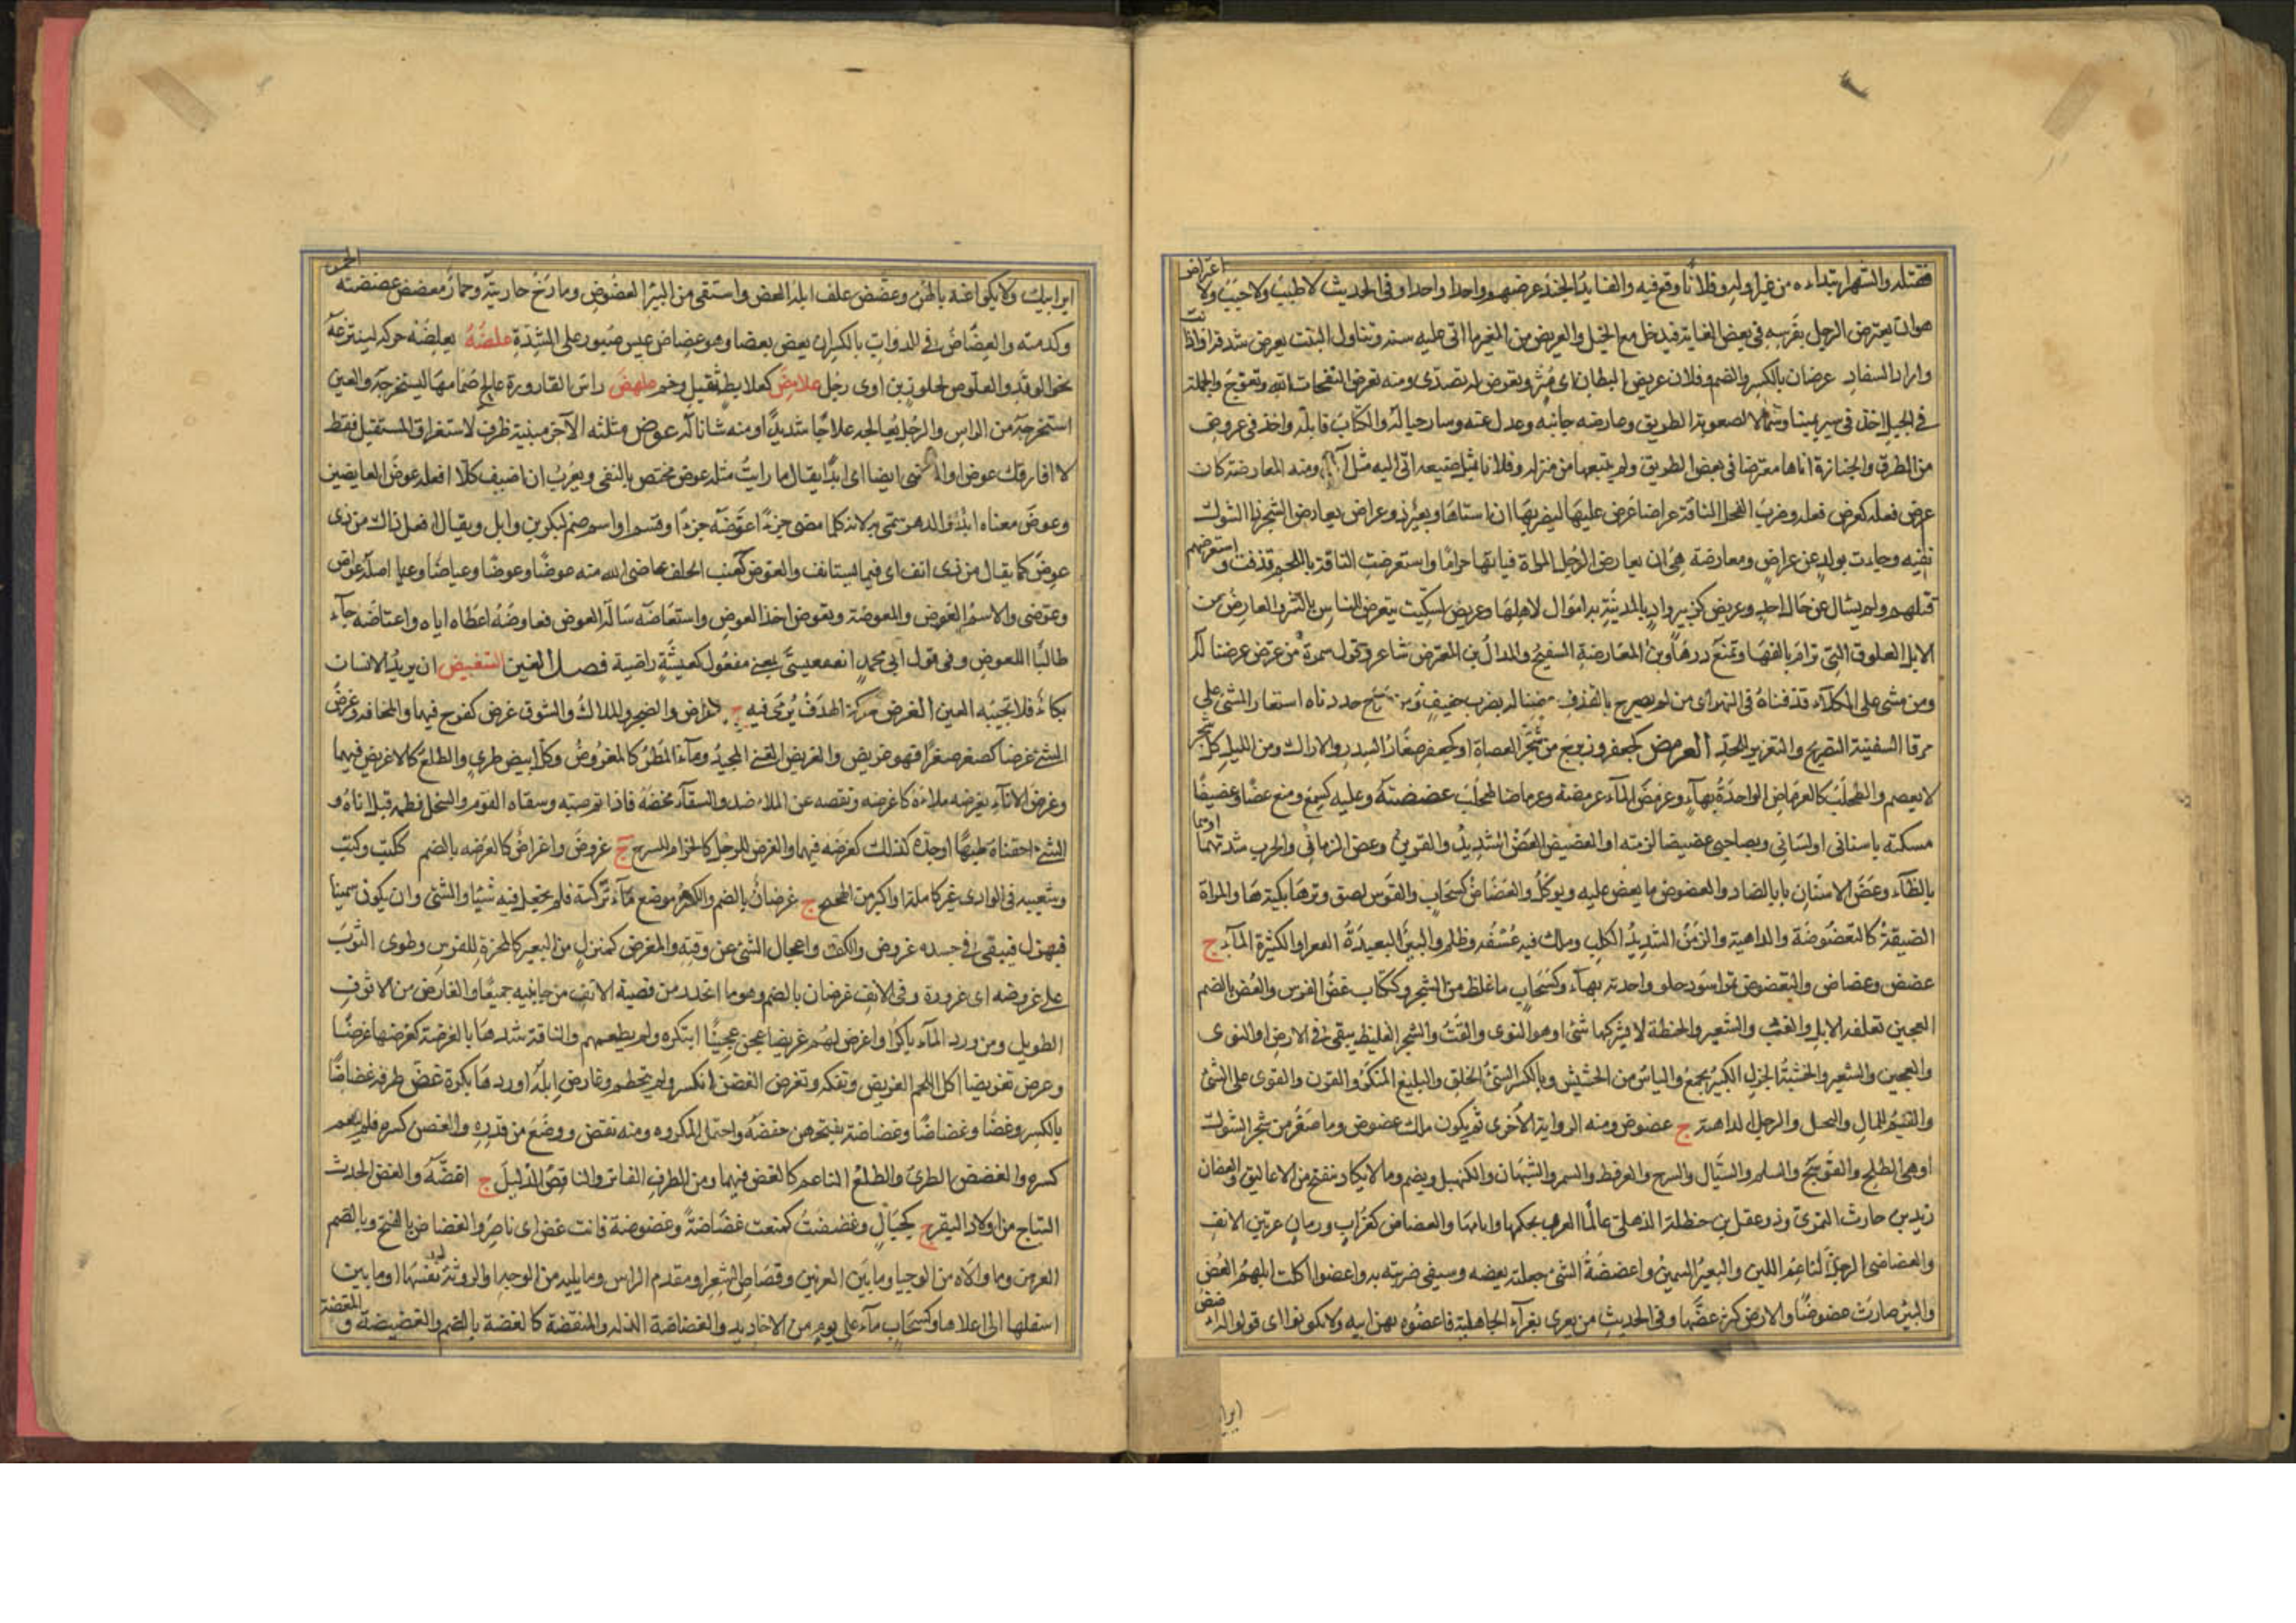 فقتله والشهر ابتداءه من غير اوله وفلانا وقع فيه والقايد الجند عرضهم واحدا واحدا وفى الحديث لا جلب ولا جنب ولا اعتراض
هو ان يعترض الرجل بفرسه فى بعض الغاية فيدخل مع الخيل والعريض من المعز ما اتى عليه سنة وتناول النبت بعرض شدقه او اذا نب
واراد السفاد عرضان بالكسر والضم وفلان عريض البطان اى مثر وتعرض له تصدى ومنه تعرضوا لنفحات الله وتعوج والجمل
فى الجبل اخذ فى سيره يمينا وشمالا لصعوبة الطريق وعارضه جانبه وعدل عنه وسار حياله والكتاب قابله واخذ فى عروض
من الطرق والجنازة اتاها معترضا فى بعض الطريق ولم يتبعها من منزله وفلانا بمثل صنيعه اتى اليه مثل ومنه المعارضة كان
عرض فعله كعرض فعله وضرب الفحل الناقة عراضا عرض عليها ليضربها ان اشتاها وبعير ذو عراض يعارض الشجر ذا الشوك
بفيه وجاءت بولد عن عراض ومعارضة هى ان يعارض الرجل المراة فياتيها حراما واستعرضت الناقة باللحم قذفت واستعرضهم
قتلهم ولم يسال عن حال احد وعريض كزبير واد بالمدينة به اموال لاهلها وعريض كسكيت يتعرض الناس بالشر والمعارض من
الابل العلوق التى ترام بانفها وتمنع درها وبن المعارضة السفيح والمذال بن المعترض شاعر وقول سمرة من عرض عرضنا له
ومن مشى على الكلاء قذفناه فى النهر اى من لم يصرح بالقذف عرضنا له بضرب خفيف ومن صرح حددناه استعار المشى على
مرقا السفينة للتصريح والتغريق للحد العرمض كجعفر وزبرج من شجر العضاه او كجعفر صغار السدر والاراك ومن الليل كل شجر
لا يعصم والطحلب كالعرماض الواحدة بهاء وعرمض الماء عرمضة وعرماضا طحلب عضضته وعليه كسمع ومنع عضا وعضيضا
مسكته باسنانى او لسانى وبصاحبى عضيضا لزمته او العضيض العض الشديد والقرين وعض الزمان والحرب شدتهما او هما
بالظاء وعض الاسنان بالضاد والعضوض ما يعض عليه ويوكل والعضاض كسحاب والقوس لصق وترها بكبدها والمراة
الضيقة كالتعضوضة والداهية والزمن الشديد الكلب وملك فيه عسف وظلم والبير البعيدة القعر او الكثيرة الماء ج
عضض وعضاض والتعضوض تمر اسود حلو واحدته بهاء وكسحاب ما غلظ من الشجر وككتاب عض الفرس والعض بالضم
العجين تعلفه الابل والقت والشعير والحنطة لا يشركها شئ او هو النوى والقت والشجر الغليظ يبقى فى الارض او النوى
والعجين والشعير والخشبة الجزل الكبير يجمع واليابس من الحشيش وبالكسر السئ الخلق والبليغ المنكر والقرن والقوى على الشئ
والقيم للمال والبخيل والرجل الداهية ج عضوض ومنه الرواية الاخرى ثم يكون ملك عضوض وما صغر من شجر الشوك
او هى الطلح والعوسج والسلم والسيال والسرح والعرفط والسمر والشبهان والكنهبل ويضم وما لا يكاد ينفتح من الاغاليق والعضان
زيد بن حارث النمرى ودغفل بن حنظلة الذهلى عالما العرب بحكمها وايامها والعضاض كغراب ورمان عرنين الانف
والعضاضى الرجل الناعم اللين والبعير السمين واعضضته الشئ جعلته يعضه وسيفى ضربته به واعضوا اكلت ابلهم العض
والبئر صارت عضوضا والارض كثر عضها وفى الحديث من تعزى بعزاء الجاهلية فاعضوه بهن ابيه ولا تكنوا اى قولوا له اعضض
اير ابيك ولا تكنوا عنه بالهن وعضض علف ابله العض واستقى من البير العضوض ومازح جاريته وحمار معضض عضضته الحمر
وكدمته والعضاض فى الدواب بالكسر ان يعض بعضها بعضا وهو عضاض عيش صبور على الشدة علضه يعلضه حركه لينتزعه
نحو الوتد والعلوض كجلوز بن اوى رجل علامض كعلابط ثقيل وخم علهض راس القارورة عالج صمامها ليستخرجه والعين
استخرجها من الراس والرجل عالجه علاجا شديدا ومنه شيئا ناله عوض مثلثه الآخر مبنية ظرف لاستغراق المستقبل فقط
لا افارقك عوض او الماضى ايضا اى ابدا يقال ما رايت مثله عوض مختص بالنفى ويعرب ان اضيف كلا افعله عوض العايضين
وعوض معناه ابدا والدهر سمى به لانه كلما مضى جزء عوضه جزء او قسم او اسم صنم لبكر بن وايل ويقال افعل ذاك من ذى
عوض كما يقال من ذى انف اى فيما يستانف والعوض كعنب الخلف عاضنى الله منه عوضا وعوضا وعياضا وعيا اصله عواض
وعوضنى والاسم العوض والمعوضة وتعوض اخذ العوض واستعاضه ساله العوض فعاوضه اعطاه اياه واعتاضه جاء
طالبا للعوض وفى قول ابى محمد انعم عيش يعنى مفعول كعيشة راضية فصل الغين التغبيض ان يريد الانسان
بكاء فلا تجيبه العين الغرض محركة الهدف يرمى فيه ج اغراض والضجر والملال والشوق غرض كفرح فيهما والمخافة وغرض
الشئ غرضا كصغر صغرا فهو غريض والغريض المغنى المجيد وماء المطر كالمغروض وكل ابيض طرى والطلع كالاغريض فيهما
وغرض الاناء يغرضه ملاءه كاغرضه ونقصه عن الملاء ضد والسقاء مخضه فاذا ثمر صبه وسقاه القوم والسخل فطمه قبل اناه و
الشئ اجتناه طريا او جذه كذلك كغرضه فيهما والغرض للرحل كالحزام للسرج ج غروض واغراض كالغرضه بالضم ككتب وكتب
وشعبه فى الوادى غير كاملة او اكبر من الهجيج ج غرضان بالضم والكسر وموضع ماء تركته فلم تجعل فيه شيئا والتثنى وان يكون سمينا
فيهزل فيبقى فى جسده غروض والكف واعجال الشئ عن وقته والمغرض كمنزل من البعير كالمحزم للفرس وطوى الثوب
على غروضه اى غروره وفى الانف غرضان بالضم وهو ما انحدر من قصبة الانف من جانبيه جميعا والغارض من الانوف
الطويل ومن ورد الماء باكرا واغرض لهم غريضا عجن عجينا ابتكره ولم يطعمهم والناقة شدها بالغرضة كغرضها غرضا
وغرض تغريضا اكل اللحم الغريض وتفكه وتغرض الغصن انكسر ولم يتحطم وغارض ابله اوردها بكرة غض طرفه غضاضا
بالكسر وغضا وغضاضا وغضاضة بفتحهن خفضه واحتمل المكروه ومنه نقص ووضع من قدره والغصن كسره فلم ينعم
كسره والغضض الطرى والطلع الناعم كالغض فيهما ومن الطرف الفاتر والناقص الذليل ج اغضة والغض الحديث
النتاج من اولاد البقر ج كجبال وغضضت كمنعت غضاضة وغضوضة فانت غض اى ناضر والغضاض بالفتح وبالضم
العرنين وما والاه من الوجه او ما بين العرنين وقصاص الشعر او مقدم الراس وما يليه من الوجه او الروثة نفسها او ما بين
اسفلها الى اعلاها وكسحاب ماء على يوم من الاخاديد والغضاضة الذلة والمنقصة كالغضة بالضم والغضيضة والمغضة
ايرا